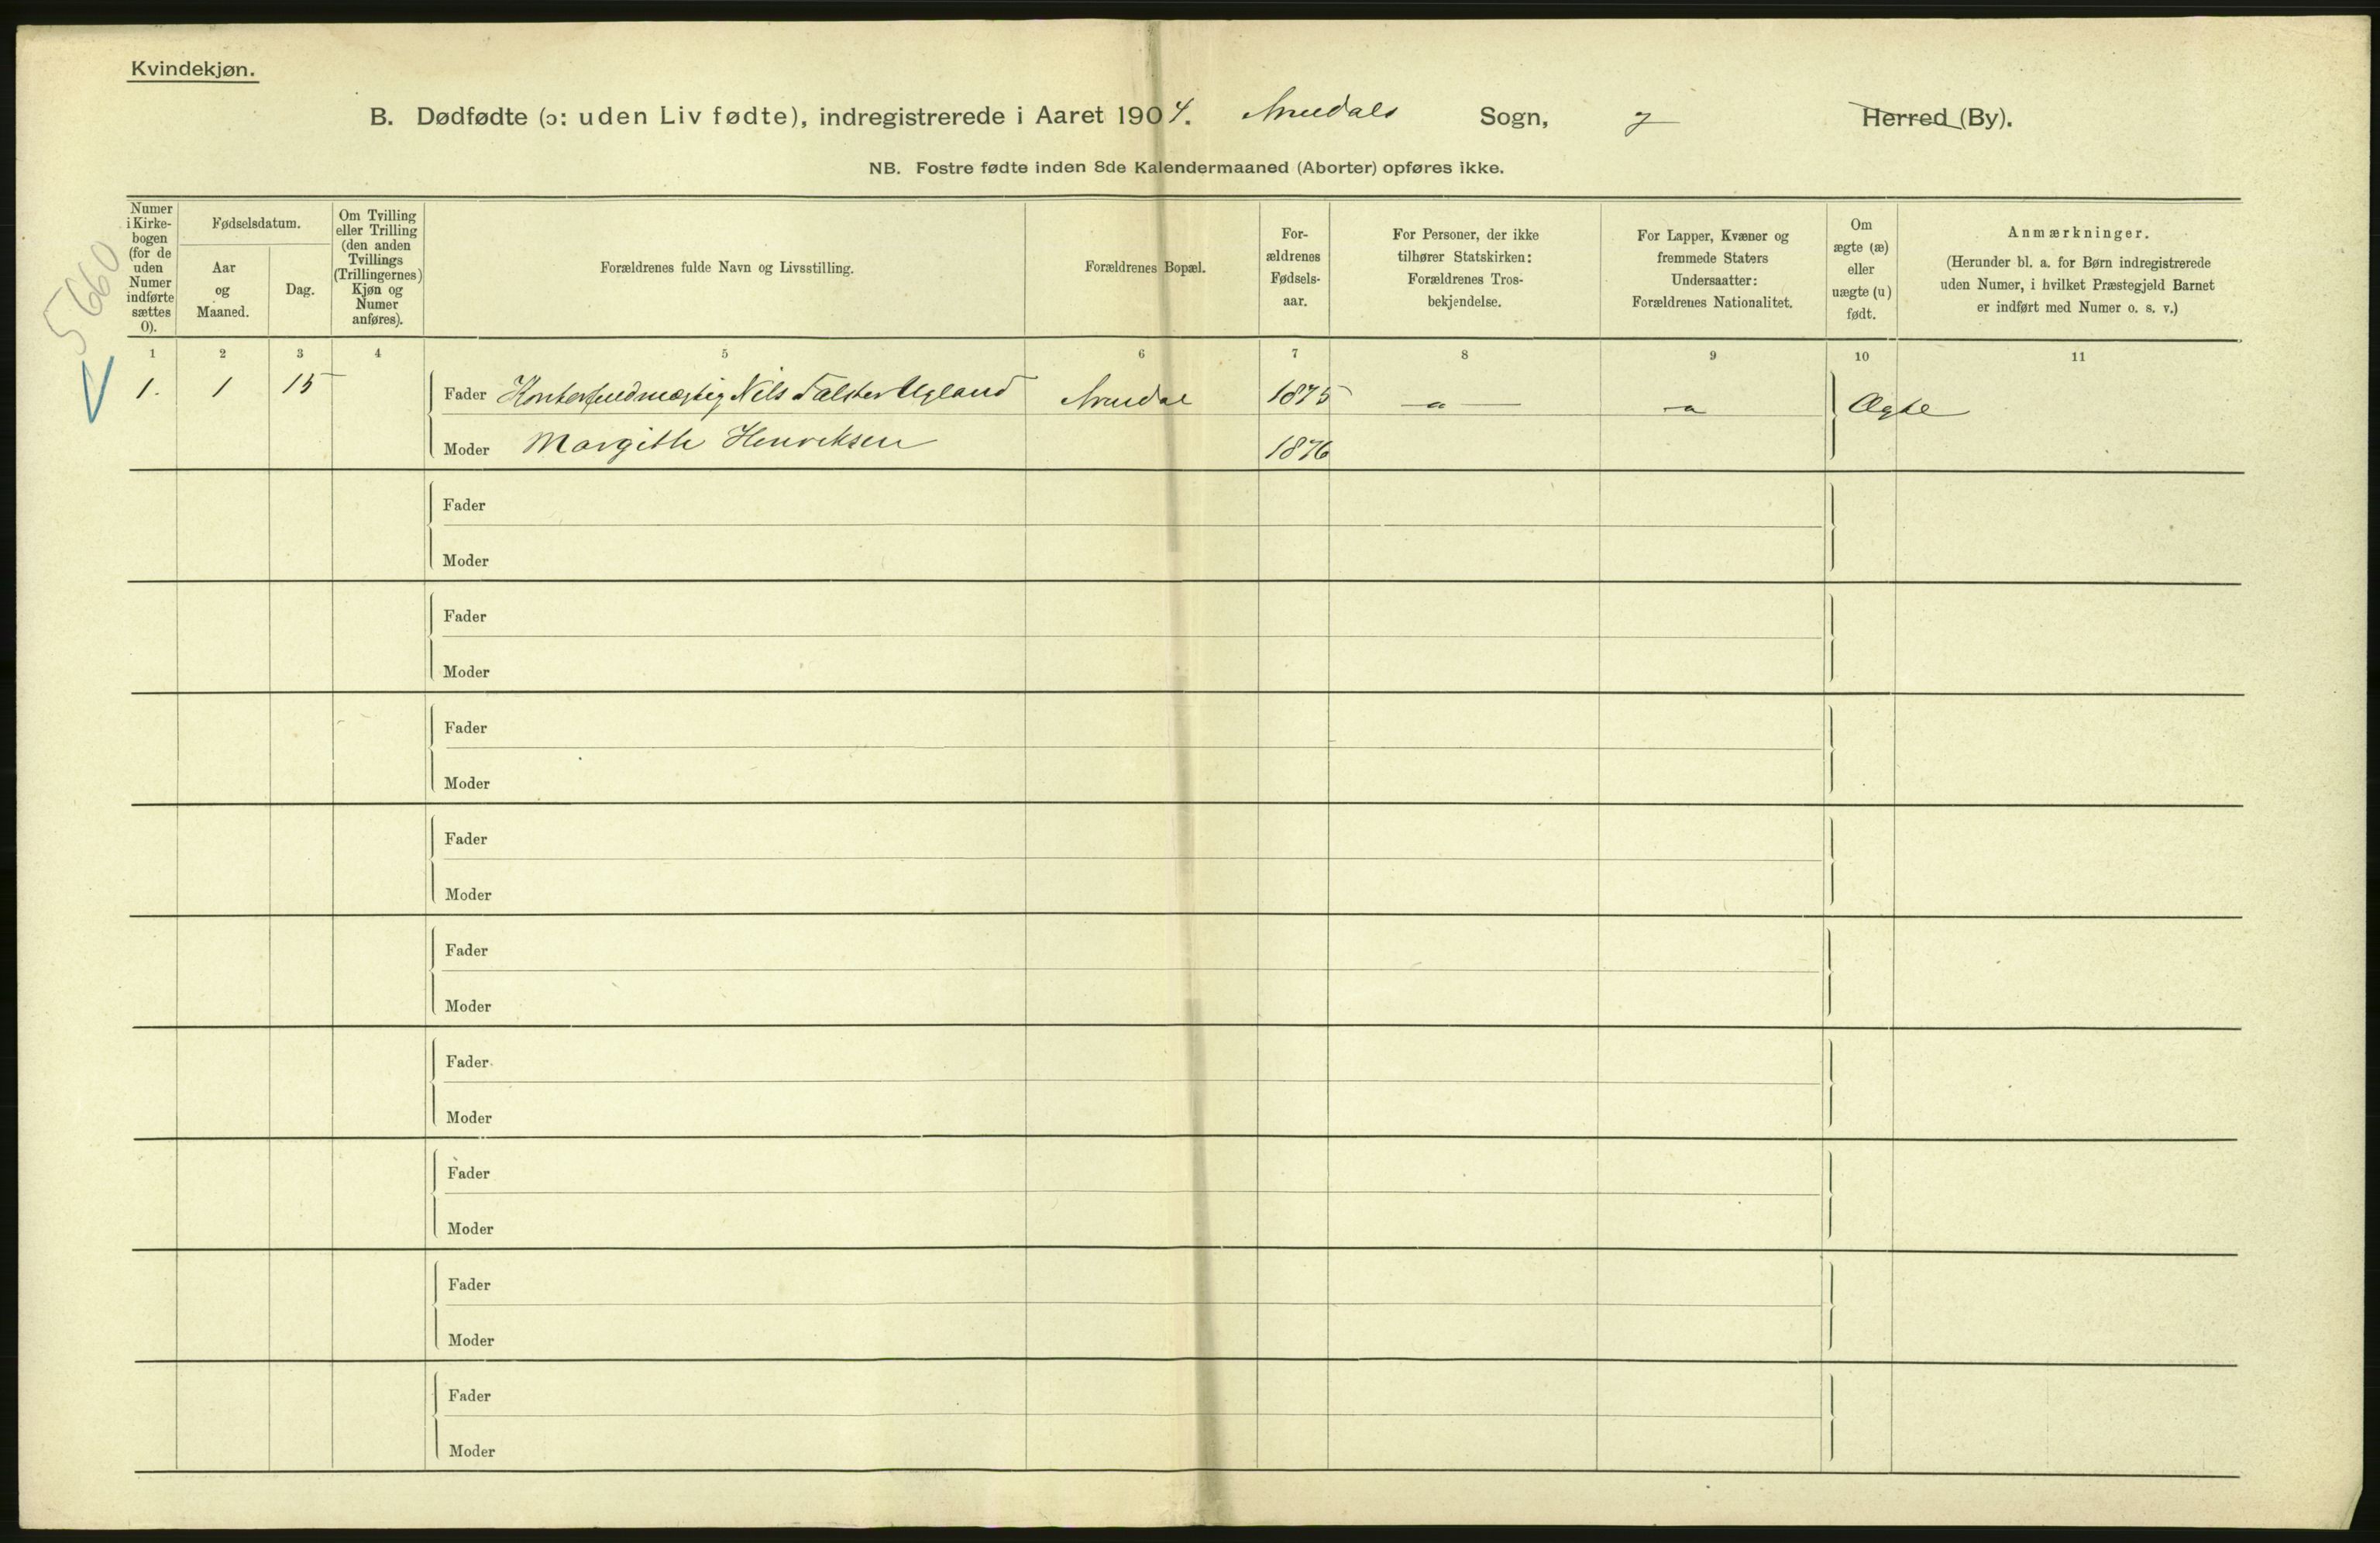 Kvindekjøn.
B. Dødfødte (ɔ: uden Liv fødte), indregistrerede i Aaret 1904. Arendals Sogn, Herred (By).
NB. Fostre fødte inden 8de Kalendermaaned (Aborter) opføres ikke.
5660
Numer
i Kirke-
bogen
(for de
uden
Numer
indførte
sættes
0).
Fødselsdatum.
Aar
og
Maaned.
Dag.
Om Tvilling
eller Trilling
(den anden
Tvillings
(Trillingernes)
Kjøn og
Numer
anføres).
Forældrenes fulde Navn og Livsstilling.
Forældrenes Bopæl.
For-
ældrenes
Fødsels-
aar.
For Personer, der ikke
tilhører Statskirken:
Forældrenes Tros-
bekjendelse.
For Lapper, Kvæner og
fremmede Staters
Undersaatter:
Forældrenes Nationalitet.
Om
ægte (æ)
eller
uægte (u)
født.
Anmærkninger.
(Herunder bl. a. for Børn indregistrerede
uden Numer, i hvilket Præstegjeld Barnet
er indført med Numer o. s. v.)
1 2 3 4 5 6 7 8 9 10 11
1. 1 15 Fader Kontorfuldmægtig Nils Falster Ugland Arendal 1875 — a — - a Ægte
Moder Margith Henriksen 1876
Fader
Moder
Fader
Moder
Fader
Moder
Fader
Moder
Fader
Moder
Fader
Moder
Fader
Moder
Fader
Moder
Fader
Moder